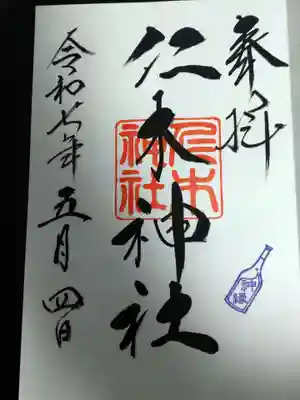 奉拝
仁木神社
仁木
神社
令和七年五月四日